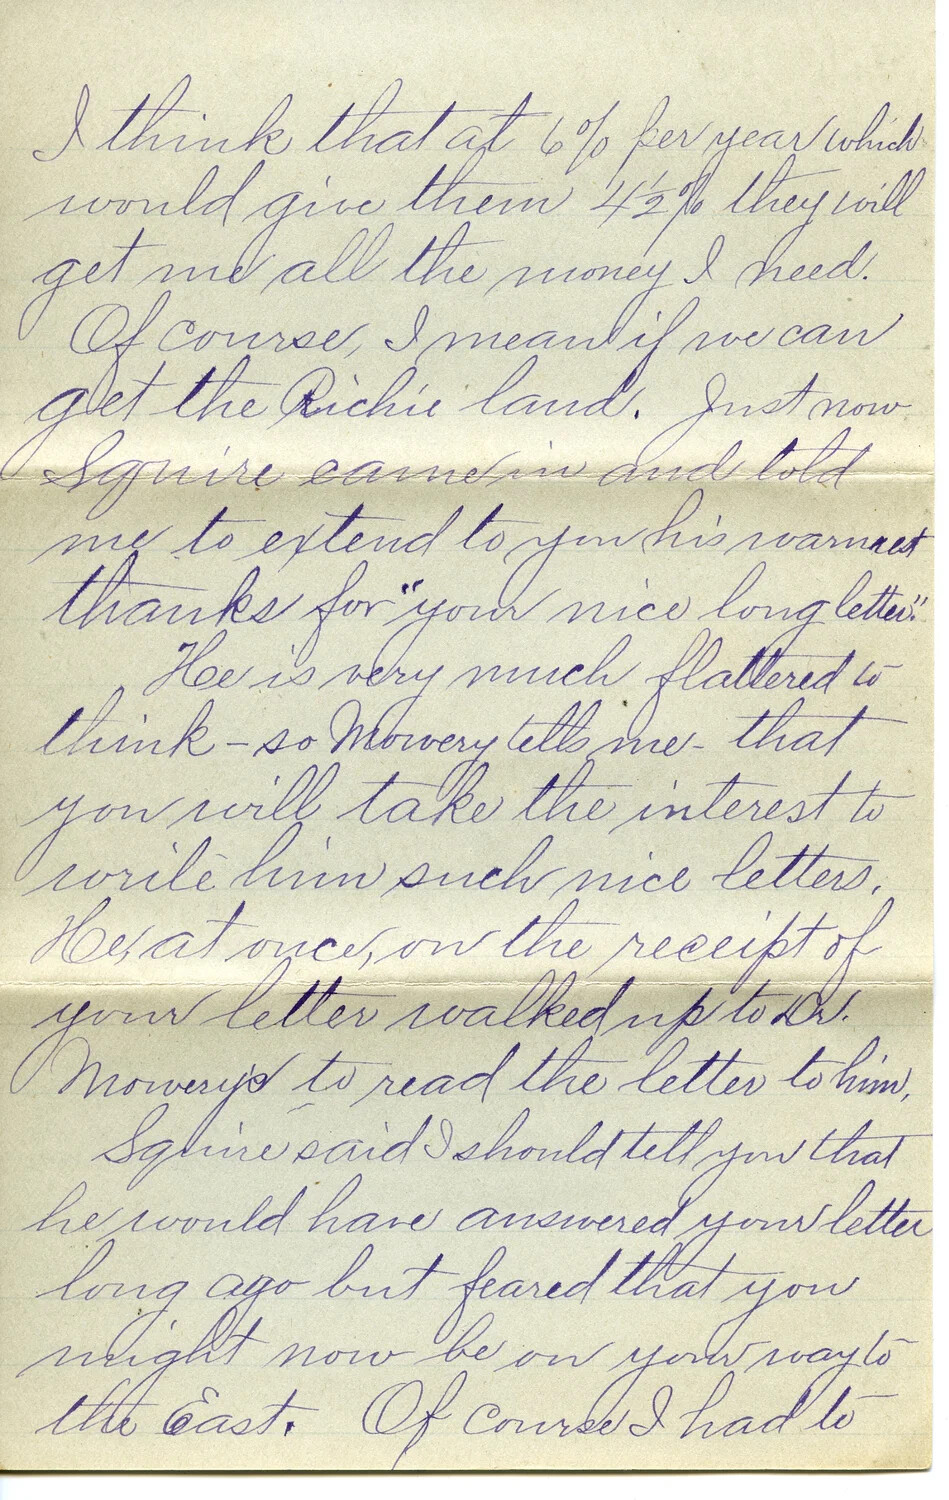 I think that at 6% per year which
would give them 4½% they will
get me all the money I need.
Of course, I mean if we can
get the Richie land. Just now
Squire came in and told
me to extend to you his warmest
thanks for "your nice long letter."
He is very much flattered to
think - so Mowery tells me - that
you will take the interest to
write him such nice letters.
He, at once, on the receipt of
your letter walked up to Dr.
Mowery's to read the letter to him.
Squire said I should tell you that
he would have answered your letter
long ago but feared that you
might now be on your way to
the East. Of course I had to